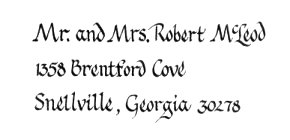 Mr. and Mrs. Robert McLeod
1358 Brentford Cove
Snellville, Georgia 30278